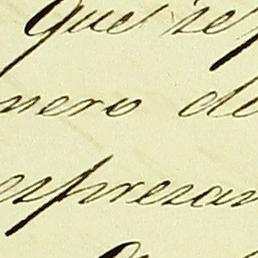 que se
nero de
espresan